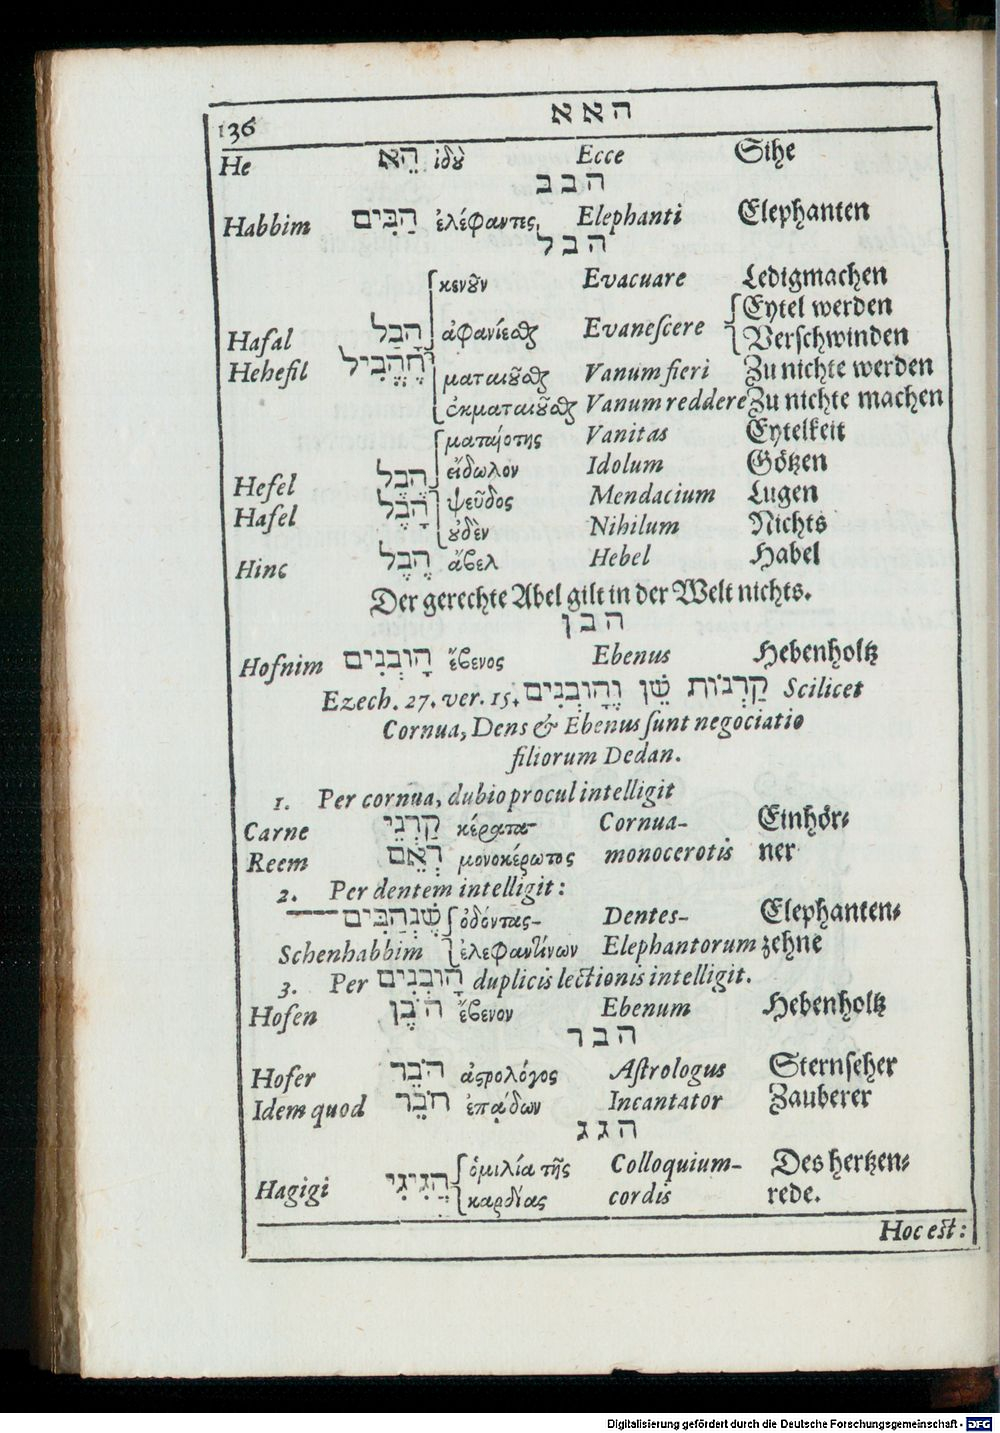 136
האא
He הֵא ἰδȣ̀ Ecce Sihe
הבב
Habbim הַבִּים ἐλέφαντες, Elephanti Elephanten
הבל
κενȣ͂ν Evacuare Ledigmachen
Eytel werden
Hafal הָבַל ἀφανίεσθαι Evanescere Verschwinden
Hehefil הֶהֱבִיל ματαιȣ͂σθαι Vanum fieri Zu nichte werden
ἐκματαιȣ͂σθαι Vanum reddere Zu nichte machen
ματαιότης Vanitas Eytelkeit
Hefel הֶבֶל εἴδωλον Idolum Götzen
Hafel הָבֶל ψεῦδος Mendacium Lugen
ȣ̓δὲν Nihilum Nichts
Hinc הֶבֶל ἄβελ Hebel Habel
Der gerechte Abel gilt in der Welt nichts.
הבן
Hofnim הָובְנִים ἔβενος Ebenus Hebenholtz
Ezech. 27. ver. 15. קַרְנוֹת שֵׁן וְהָובְנִים Scilicet
Cornua, Dens & Ebenus sunt negociatio
filiorum Dedan.
1. Per cornua, dubio procul intelligit
Carne קַרְנֵי κέρατα- Cornua- Einhör-
Reem רְאֵם μονοκέρωτος monocerotis ner
2. Per dentem intelligit:
שֶׁנְהַבִּים ὀδόντας- Dentes- Elephanten-
Schenhabbim ἐλεφαντίνων Elephantorum zehne
3. Per הָובְנִים duplicis lectionis intelligit.
Hofen הֹבֶן ἔβενον Ebenum Hebenholtz
הבר
Hofer הֹבֵר ἀστρολόγος Astrologus Sternseher
Idem quod חֹבֵר ἐπᾴδων Incantator Zauberer
הגג
Hagigi הֲגִיגִי ὁμιλία τῆς Colloquium- Des hertzen-
καρδίας cordis rede.
Hoc est:
Digitalisierung gefördert durch die Deutsche Forschungsgemeinschaft - DFG